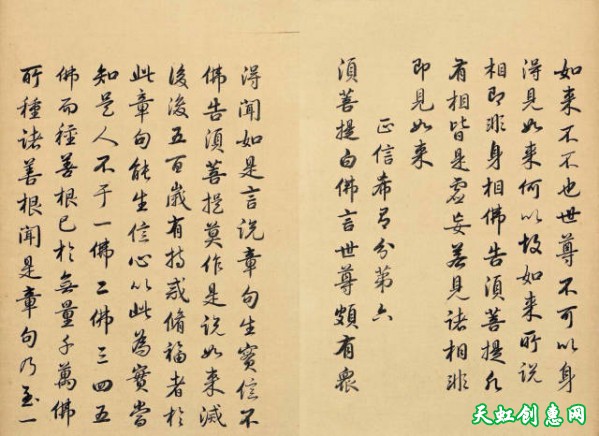 如来不不也世尊不可以身
得見如来何以故如来所說
相即非身相佛告須菩提凡
有相皆是虛妄若見諸相非
即見如来
正信希有分第六
須菩提白佛言世尊頗有衆
得聞如是言說章句生實信不
佛告須菩提莫作是說如来滅
後後五百歲有持戒脩福者於
此章句能生信心以此為實當
知是人不于一佛二佛三四五
佛而種善根已於無量千萬佛
所種諸善根聞是章句乃至一
天虹创惠网